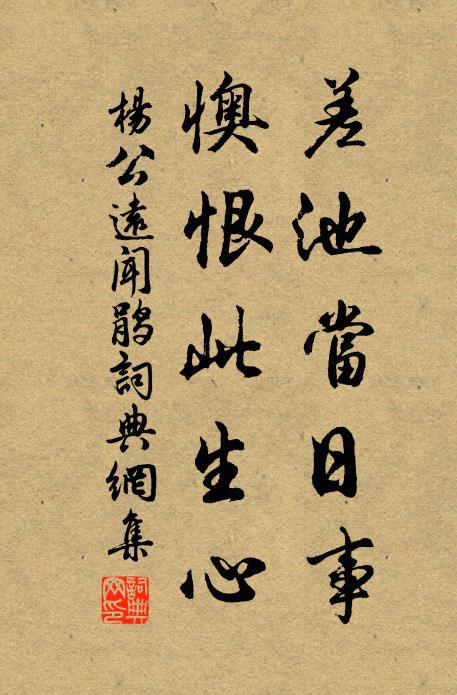 差池當日事
懊恨此生心
楊公遠聞鵑詞典網集
詞典網印